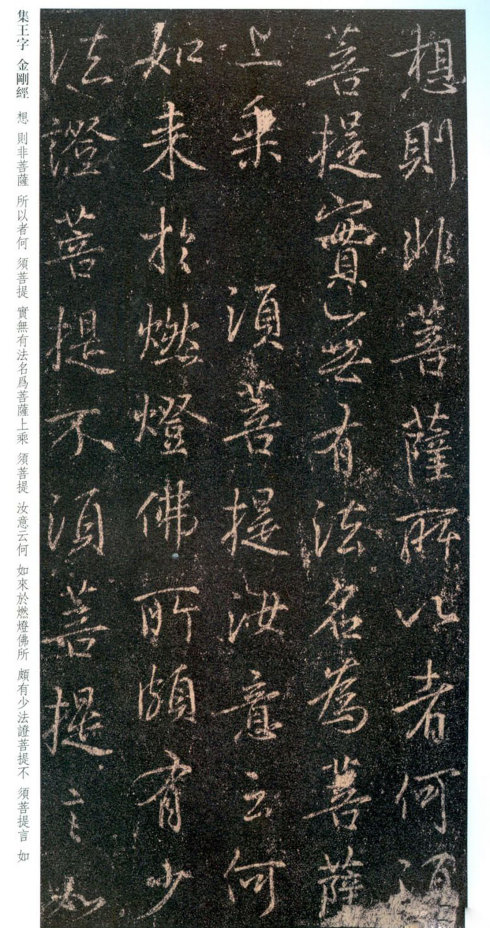 想則非菩薩所以者何須
菩提實無有法名為菩薩
上乘須菩提汝意云何
如来於燃燈佛所頗有少
法證菩提不須菩提言如
集王字 金剛經 想 則非菩薩 所以者何 須菩提 實無有法名爲菩薩上乘 須菩提 汝意云何 如來於燃燈佛所 頗有少法證菩提不 須菩提言 如